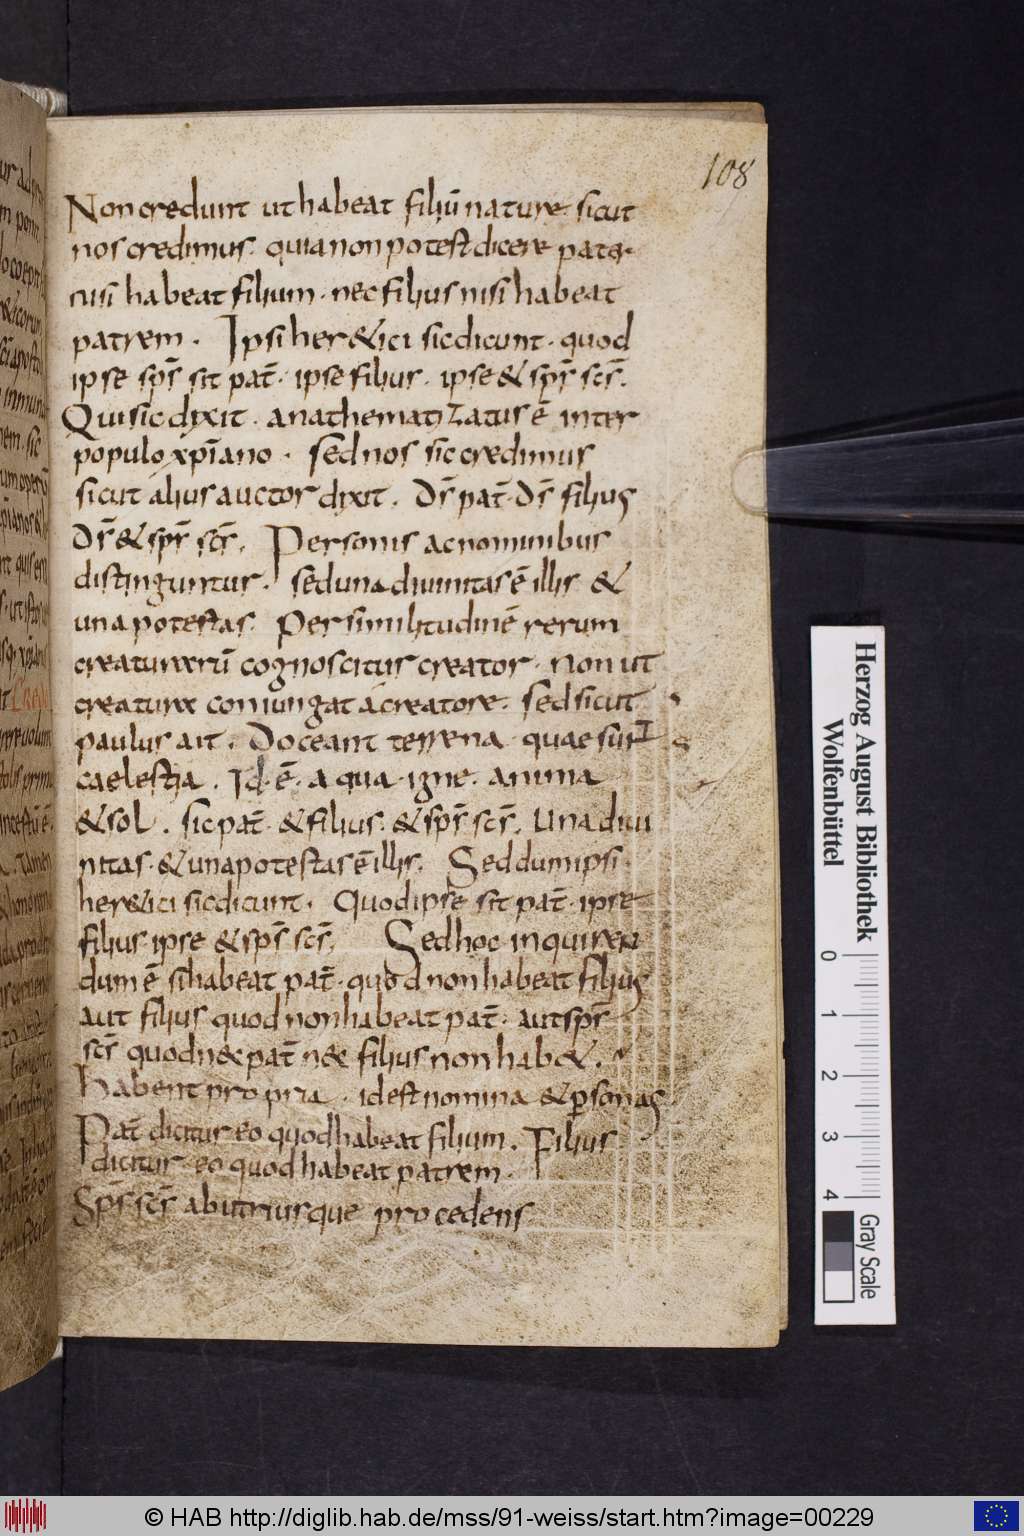 108
Non credunt ut habeat filiū nature sicut
nos credimus · quia non potest dicere pater ·
nisi habeat filium · nec filius nisi habeat
patrem · Ipsi her&ici sic dicunt · quod
ipse sp̄s sit pat̄ · ipse filius · ipse & sp̄s sc̄s ·
Qui sic dixit · anathematizatus ē inter
populo xp̄iano · sed nos sic credimus
sicut alius auctor dixit · Ds̄ pat̄ · Ds̄ filius
Ds̄ & sp̄s sc̄s · Personis ac nominibus
distinguntur · sed una divinitas ē illis &
una potestas · Per similitudinē rerum
creaturarū cognoscitur creator · non ut
creature coniungat a creatore · sed sicut
paulus ait · Doceant terrena quae sunt
caelestia · Id · ē · aqua · igne · anima
& sol · sic pat̄ · & filius · & sp̄s sc̄s · Una divi
nitas · & una potestas ē illis · Sed dum ipsi
her&ici sic dicunt · Quod ipse sit pat̄ · ipse
filius · ipse & sp̄s sc̄s · Sed hoc inquiren
dum ē si habeat pat̄ · quod non habeat filius
aut filius quod non habeat pat̄ · aut sp̄s
sc̄s quod nec pat̄ nec filius non hab& ·
habent propria · id est nomina & p̱sonas
Pat̄ dicitur eo quod habeat filium · Filius
dicitur eo quod habeat patrem ·
Sp̄s sc̄s ab utriusque procedens
Herzog August Bibliothek
Wolfenbüttel
0 1 2 3 4
Gray Scale
© HAB http://diglib.hab.de/mss/91-weiss/start.htm?image=00229